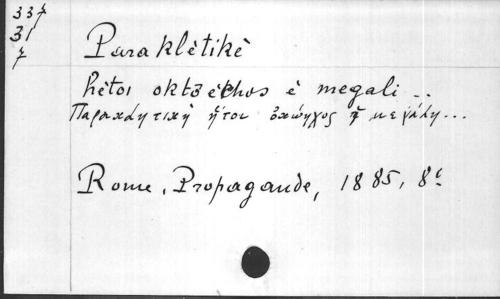 337
31
7
Paraklètikè
hètoi oktōèkhos è megali ..
Παρακλητικὴ ἤτοι ὀκτώηχος ἡ μεγάλη ...
Rome, Propagande, 1885, 8º